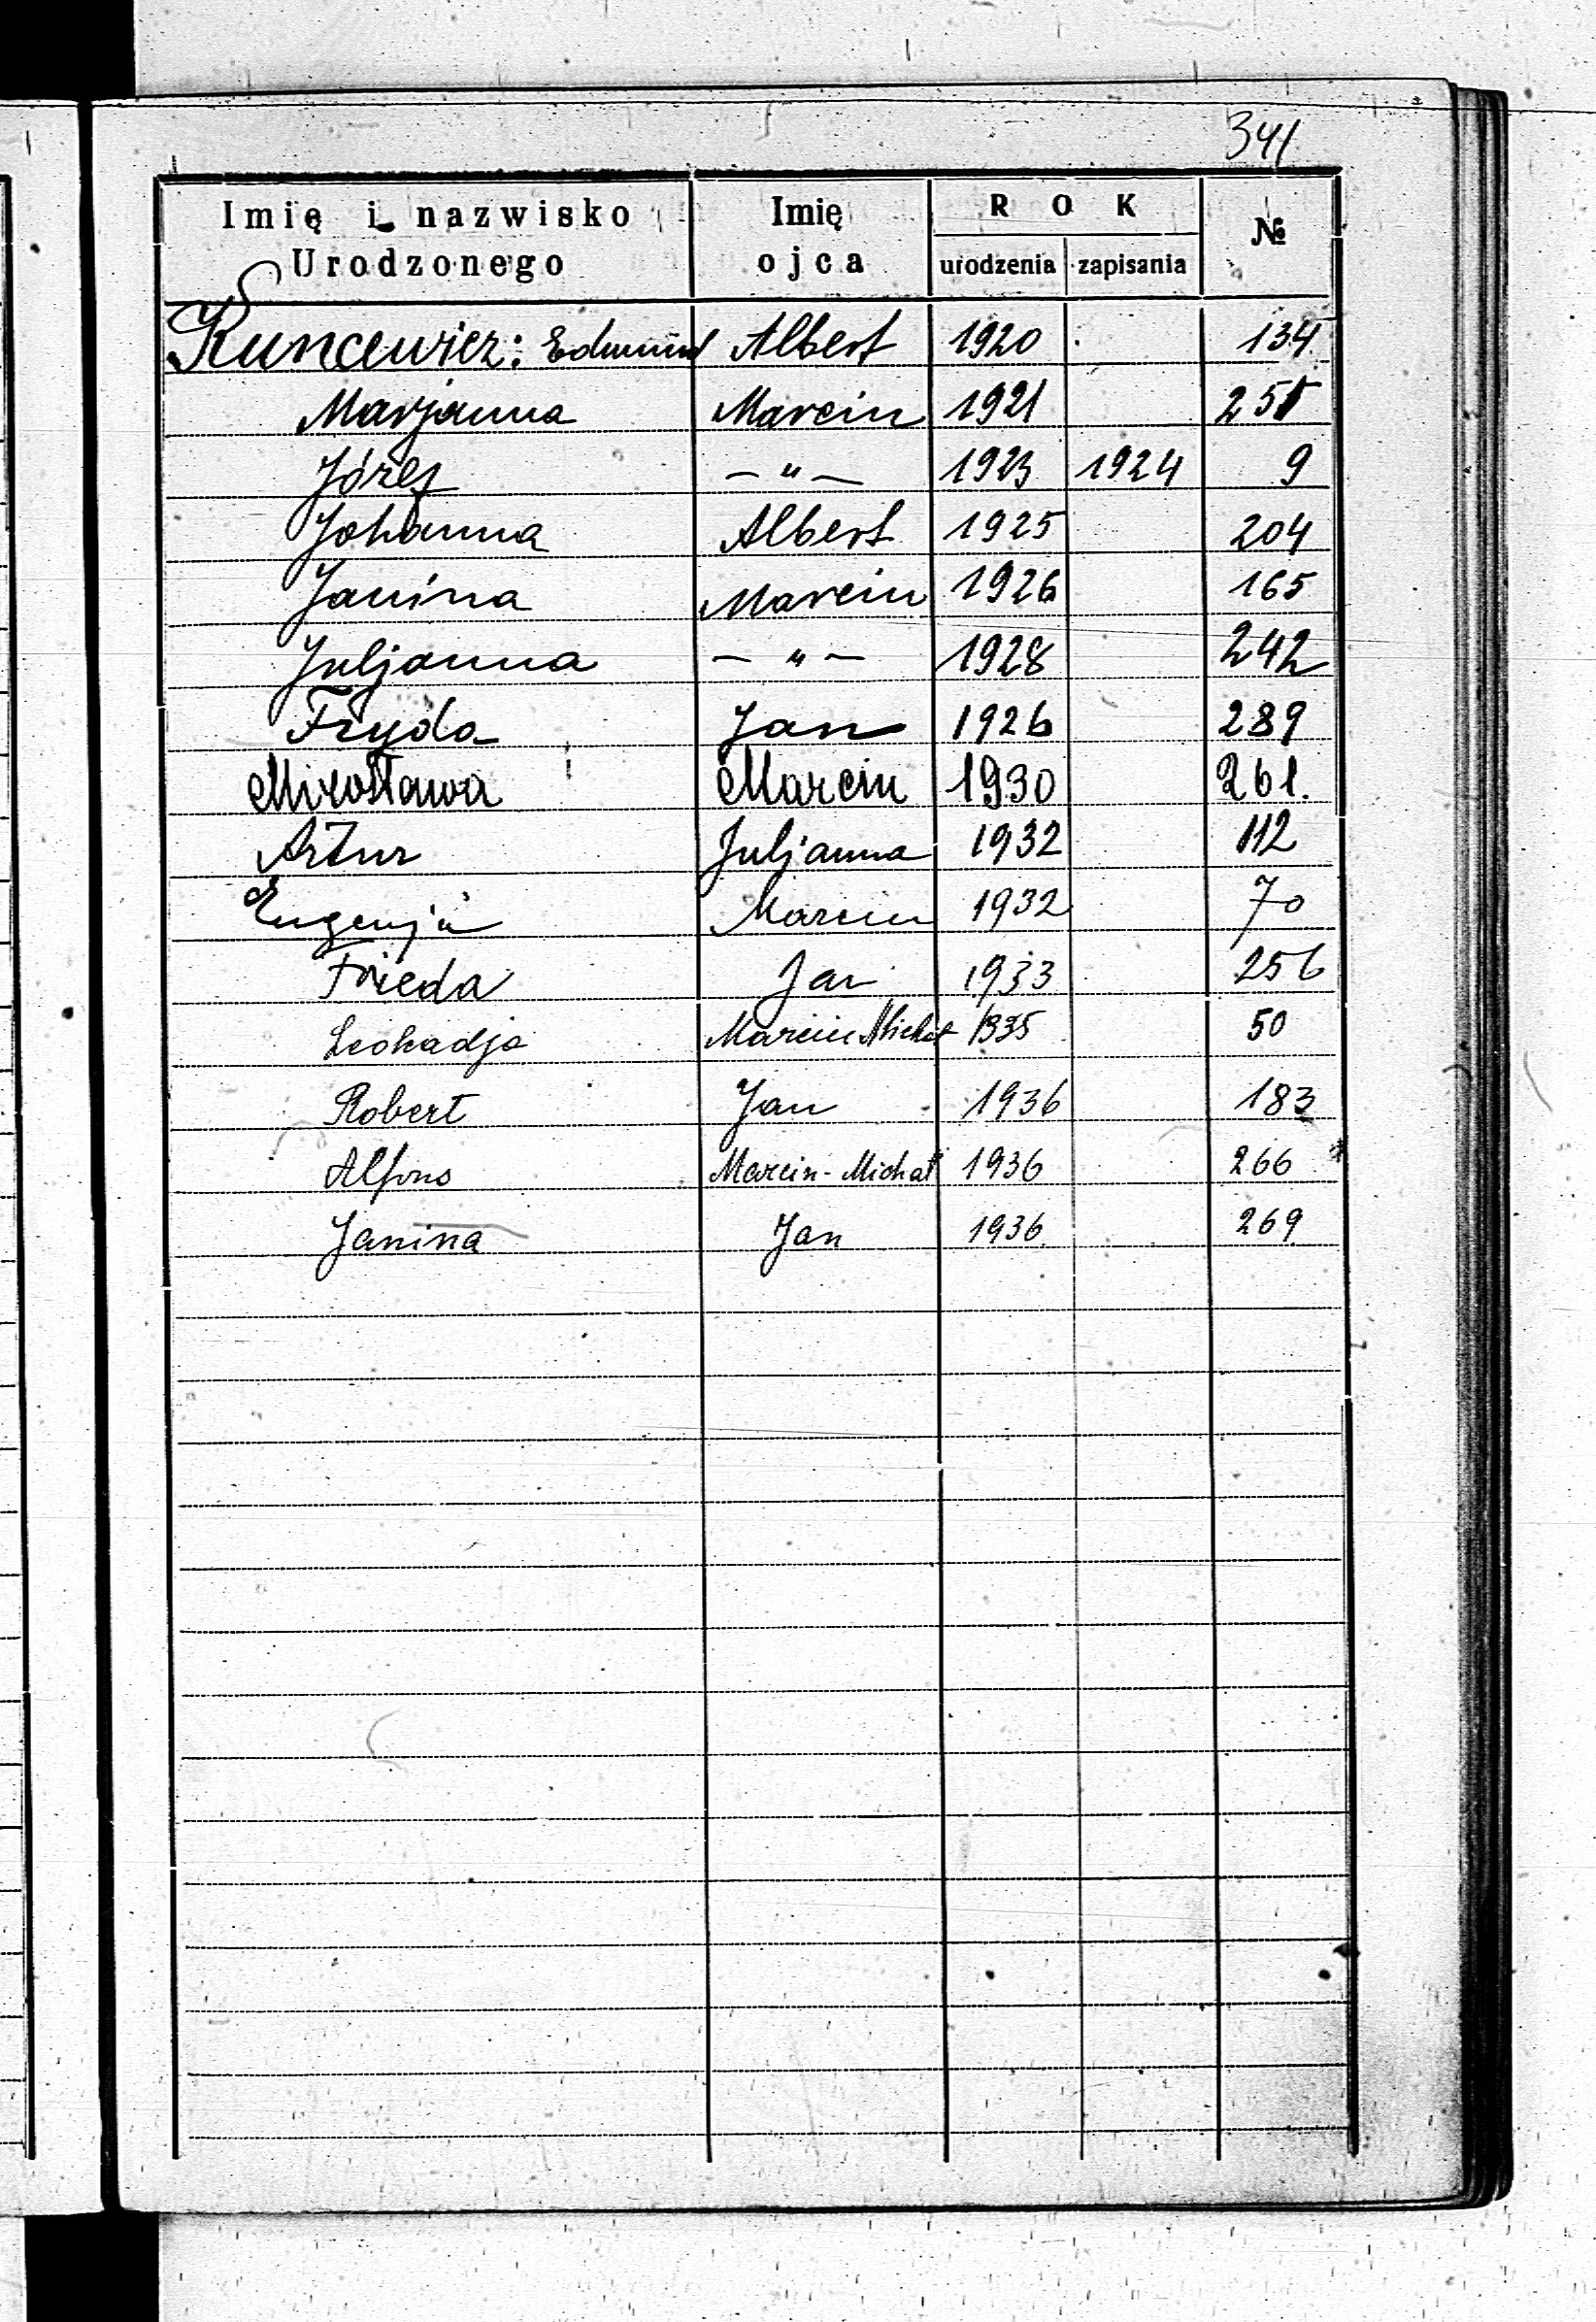 341
Imię i nazwisko Urodzonego | Imię ojca | ROK urodzenia | zapisania | №
Kuncewicz: Edmund Albert 1920 134
Marjanna Marcin 1921 251
Józef — " — 1923 1924 9
Johanna Albert 1925 204
Janina Marcin 1926 165
Juljanna — " — 1928 242
Fryda Jan 1926 289
Mirosława Marcin 1930 261.
Artur Juljanna 1932 112
Eugenja Marcin 1932 70
Frieda Jan 1933 256
Leokadja Marcin Michał 1935 50
Robert Jan 1936 183
Alfons Marcin-Michał 1936 266
Janina Jan 1936 269